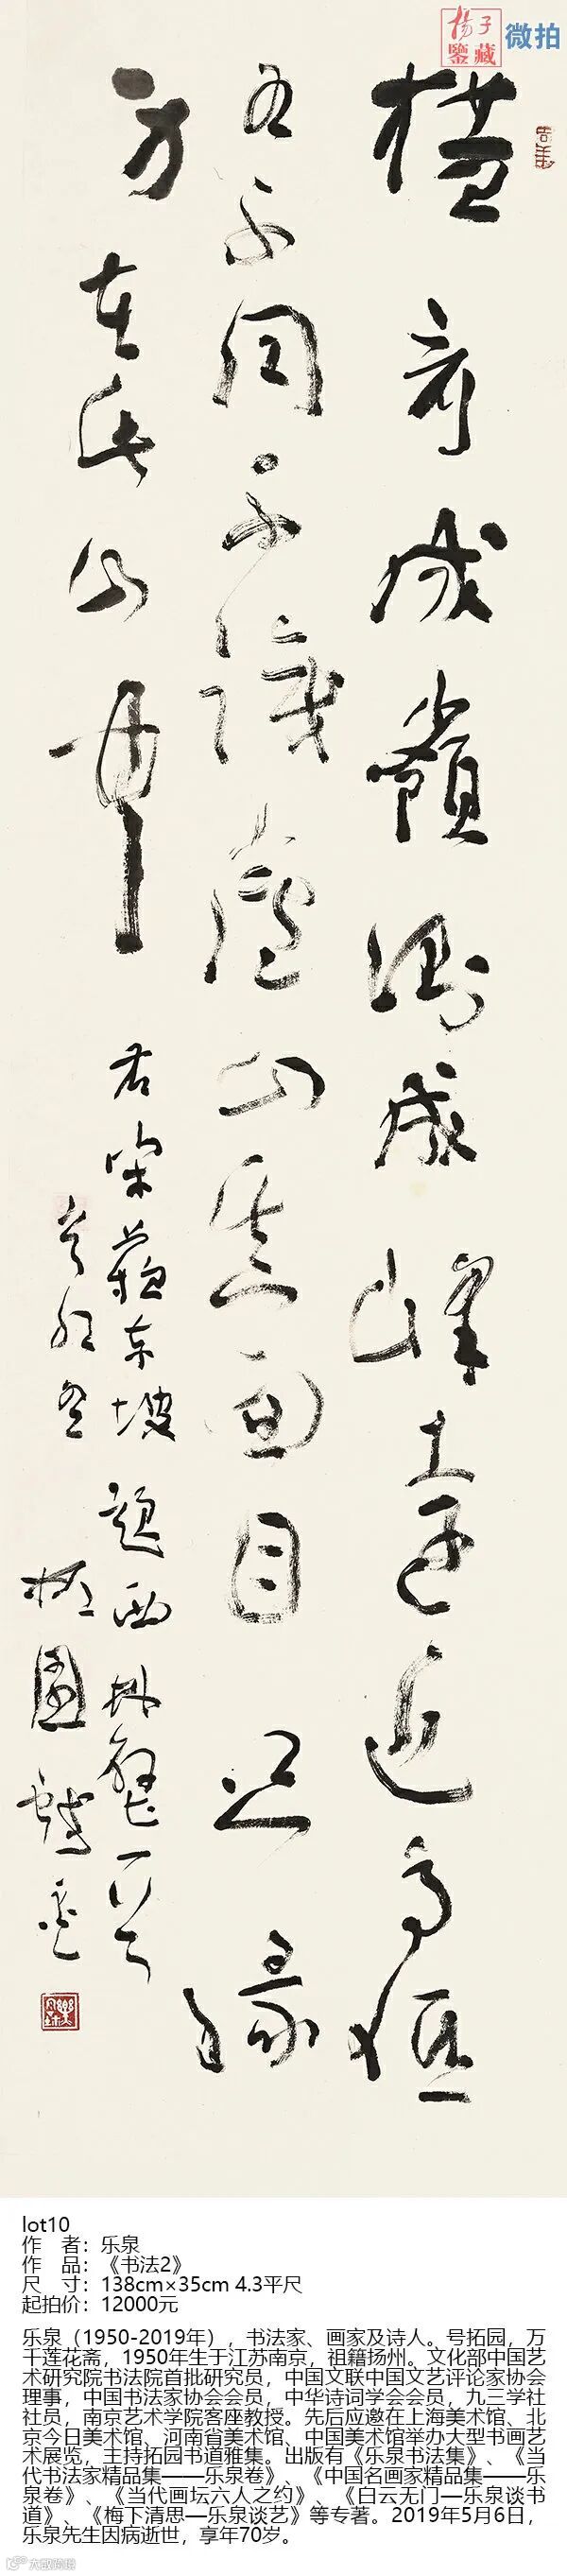 揚子
鑒藏
微拍
橫看成嶺側成峰遠近高低
各不同不識廬山真面目只緣
身在此山中 右宋蘇東坡題西林壁一首
拓園 樂泉
lot10
作 者：乐泉
作 品：《书法2》
尺 寸：138cm×35cm 4.3平尺
起拍价：12000元
乐泉（1950-2019年），书法家、画家及诗人。号拓园，万
千莲花斋，1950年生于江苏南京，祖籍扬州。文化部中国艺
术研究院书法院首批研究员，中国文联中国文艺评论家协会
理事，中国书法家协会会员，中华诗词学会会员，九三学社
社员，南京艺术学院客座教授。先后应邀在上海美术馆、北
京今日美术馆、河南省美术馆、中国美术馆举办大型书画艺
术展览，主持拓园书道雅集。出版有《乐泉书法集》、《当
代书法家精品集——乐泉卷》、《中国名画家精品集——乐
泉卷》、《当代画坛六人之约》、《白云无门—乐泉谈书
道》、《梅下清思—乐泉谈艺》等专著。2019年5月6日，
乐泉先生因病逝世，享年70岁。